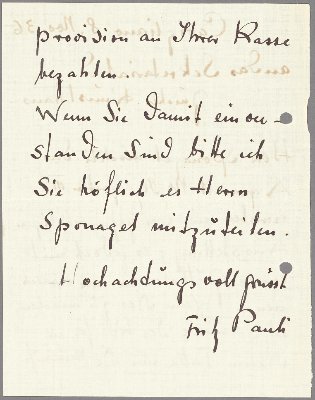 provision an Ihrer Kasse
bezahlen.
Wenn Sie damit einver-
standen sind bitte ich
Sie höflich es Herrn
Sponagel mitzuteilen.
Hochachtungsvoll grüsst
Fritz Pauli